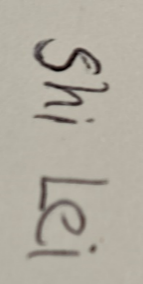 Shi Lei